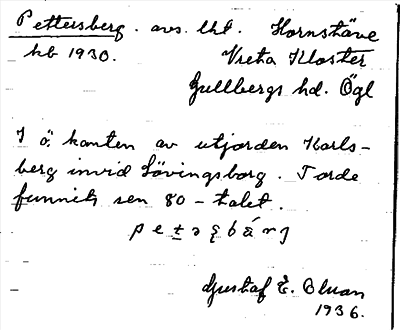 Pettersberg. avs. lht. Hornstäve
kb 1930. Vreta Kloster
Gullbergs hd. Ögl
I ö. kanten av utjorden Karls-
berg invid Lövingsborg. Torde
funnits sen 80-talet.
Gustaf E. Cluan
1936.